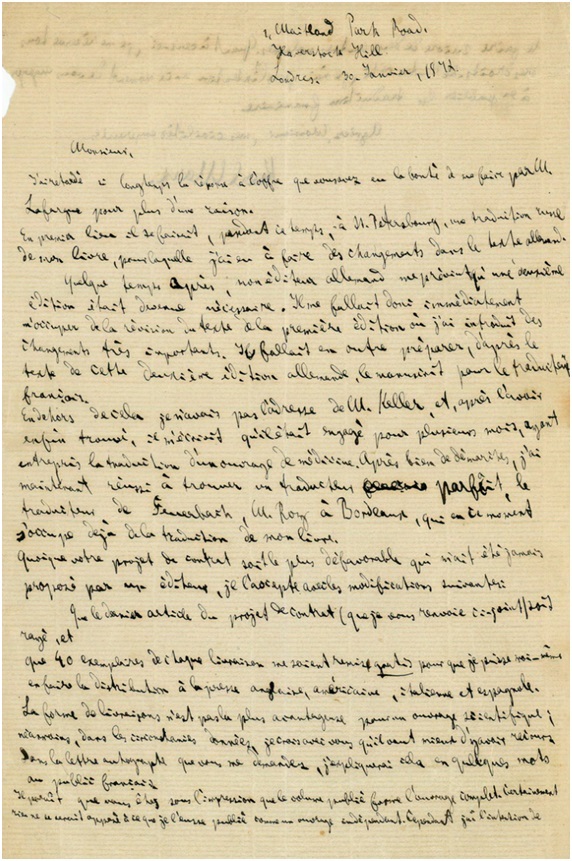 1, Maitland Park Road.
Haverstock Hill
Londres. 30 Janvier, 1872
Monsieur,
J'ai retardé si longtemps la réponse à l'offre que vous avez eu la bonté de me faire par M.
Lafargue pour plus d'une raison.
En premier lieu il se faisait, pendant ce temps, à St. Pétersbourg, une traduction russe
de mon livre, pour laquelle j'ai eu à faire des changements dans le texte allemand.
Quelque temps après, mon éditeur allemand me prévint qu'une deuxième
édition était devenue nécessaire. Il me fallait donc immédiatement
m'occuper de la révision du texte de la première édition où j'ai introduit des
changements très importants. Il fallait en outre préparer, d'après le
texte de cette deuxième édition allemande, le manuscrit pour le traducteur
français.
En dehors de cela je n'avais pas l'adresse de M. Keller, et, après l'avoir
enfin trouvé, il m'écrivait qu'il était engagé pour plusieurs mois, ayant
entrepris la traduction d'un ouvrage de médicine. Après bien de démarches, j'ai
maintenant réussi à trouver un traducteur parfait, le
traducteur de Feuerbach, M. Roy à Bordeaux, qui en ce moment
s'occupe déjà de la traduction de mon livre.
Quoique votre projet de contrat soit le plus défavorable qui m'ait été jamais
proposé par un éditeur, je l'accepte avec les modifications suivantes:
Que le dernier article du projet de contrat (que je vous renvoie ci-joint) soit
rayé, et
que 40 exemplaires de chaque livraison me soient remise gratis pour que je puisse moi-même
en faire la distribution à la presse anglaise, américaine, italienne et espagnole.
La forme de livraisons n'est pas la plus avantageuse pour un ouvrage scientifique;
néanmoins, dans les circonstances données, je crois avec vous qu'il vaut mieux d'y avoir recours
Dans la lettre autographe que vous me demandez, j'expliquerai cela en quelques mots
au public français
Il paraît que vous êtes sous l'impression que le volume publié forme l'ouvrage complet. Certainement
rien ne se serait opposé à ce que je l'eusse publié comme un ouvrage indépendant. Cependant j'ai l'intention de